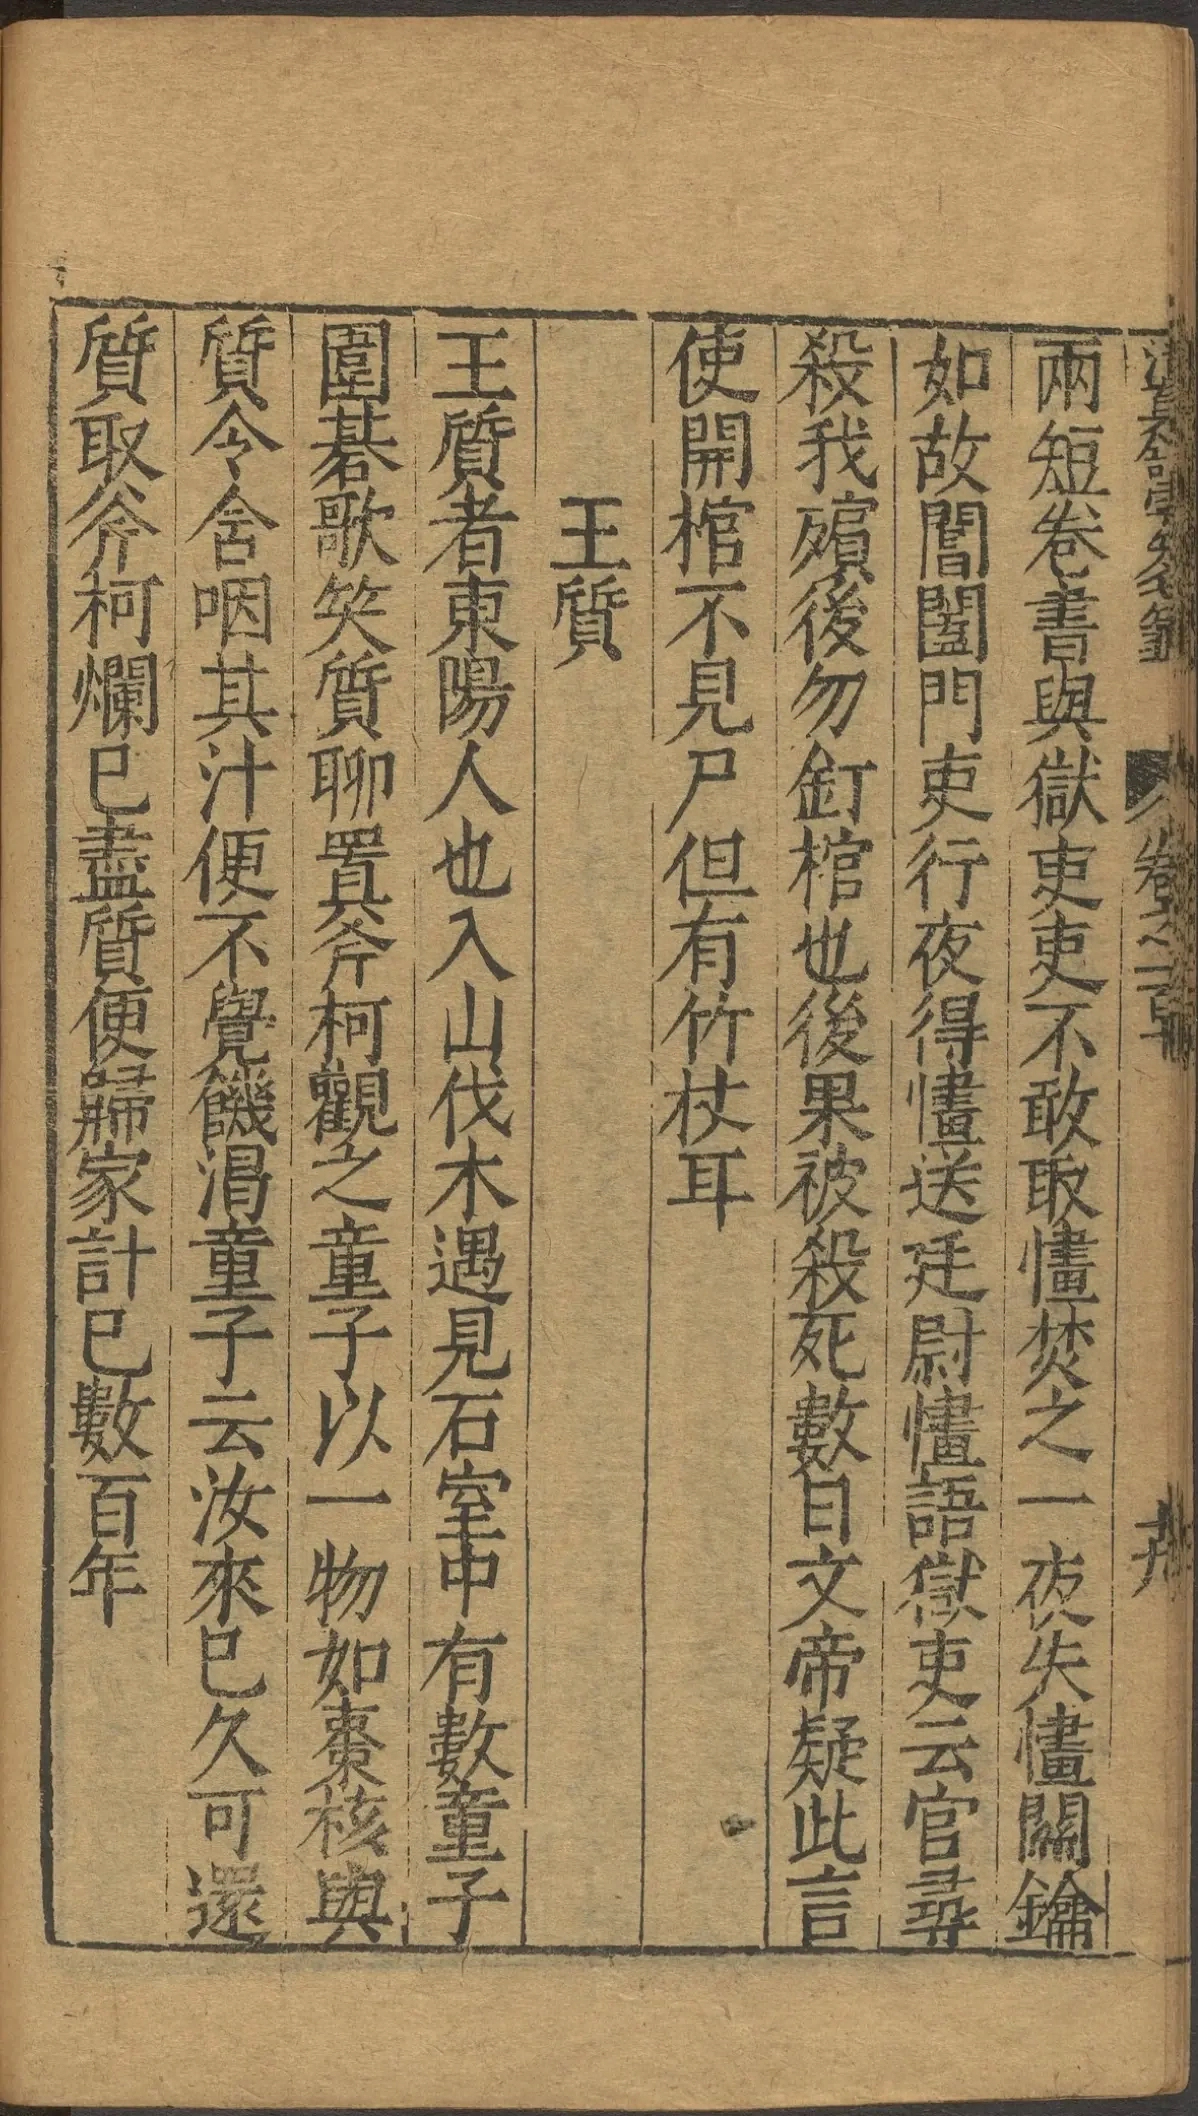 兩短卷書與獄吏吏不敢取㦎焚之一夜失㦎關鑰
如故閽闔門吏行夜得㦎送廷尉㦎語獄吏云官尋
殺我殯後勿釘棺也後果被殺死數日文帝疑此言
使開棺不見尸但有竹杖耳
王質
王質者東陽人也入山伐木遇見石室中有數童子
圍棊歌笑質聊置斧柯觀之童子以一物如棗核與
質令含咽其汁便不覺饑渴童子云汝來已久可還
質取斧柯爛已盡質便歸家計已數百年